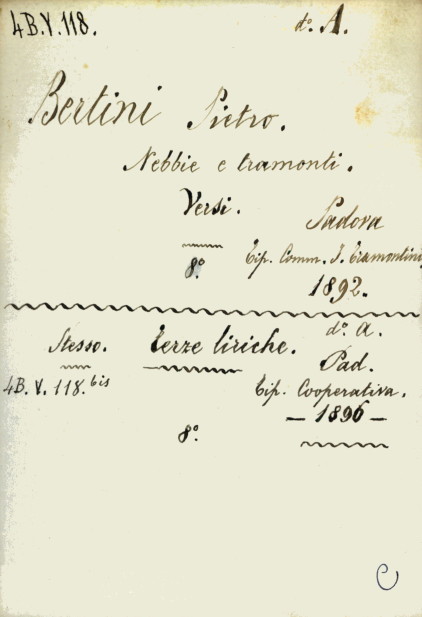 4B.V.118. d.º A.
Bertini Pietro.
Nebbie e tramonti.
Versi.
Padova
8.º Tip. Comm. I. Tramontini
1892.
d.º A.
Stesso. Terze liriche.
Pad.
4B.V.118.bis Tip. Cooperativa.
— 1896 —
8.º
C